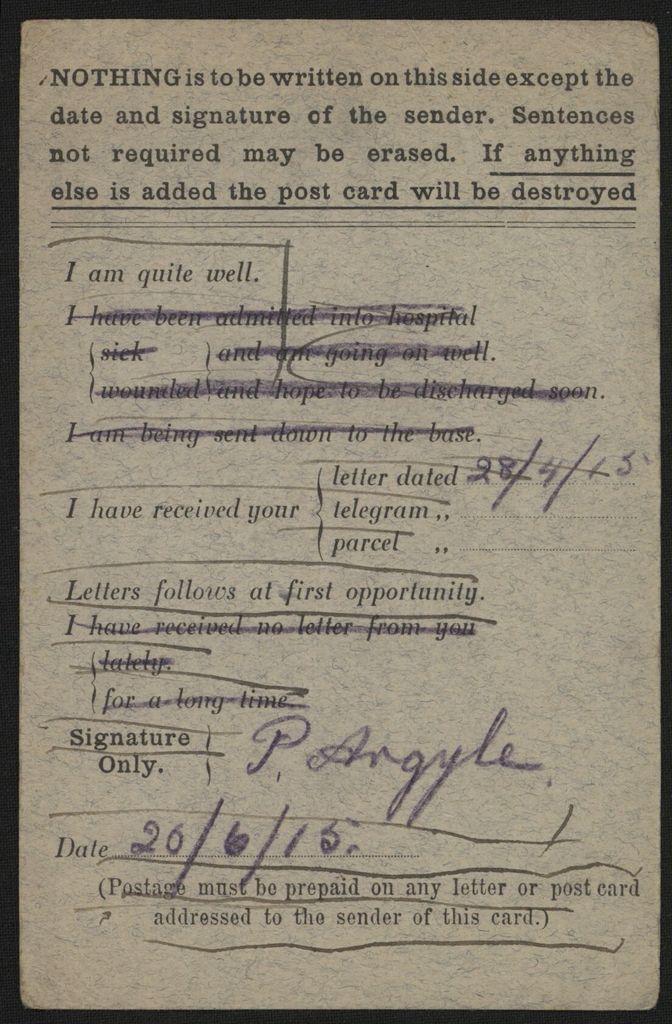 NOTHING is to be written on this side except the
date and signature of the sender. Sentences
not required may be erased. If anything
else is added the post card will be destroyed
I am quite well.
I have been admitted into hospital
sick and am going on well.
wounded and hope to be discharged soon.
I am being sent down to the base.
letter dated 28/4/15
I have received your telegram ,,
parcel ,,
Letters follows at first opportunity.
I have received no letter from you
lately.
for a long time.
Signature
Only. P. Argyle
Date 20/6/15.
(Postage must be prepaid on any letter or post card
addressed to the sender of this card.)